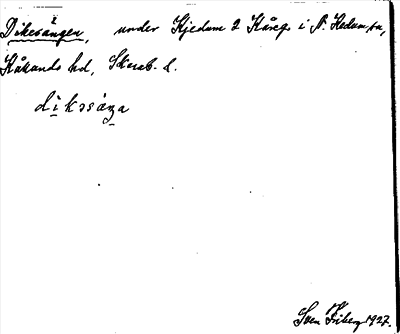 Dikesängen, under Kjedum 2 Kåreg. i N. Kedum sn,
Kåkinds hd, Skarab. l.
dikesäŋa
Sven Friberg 1927.